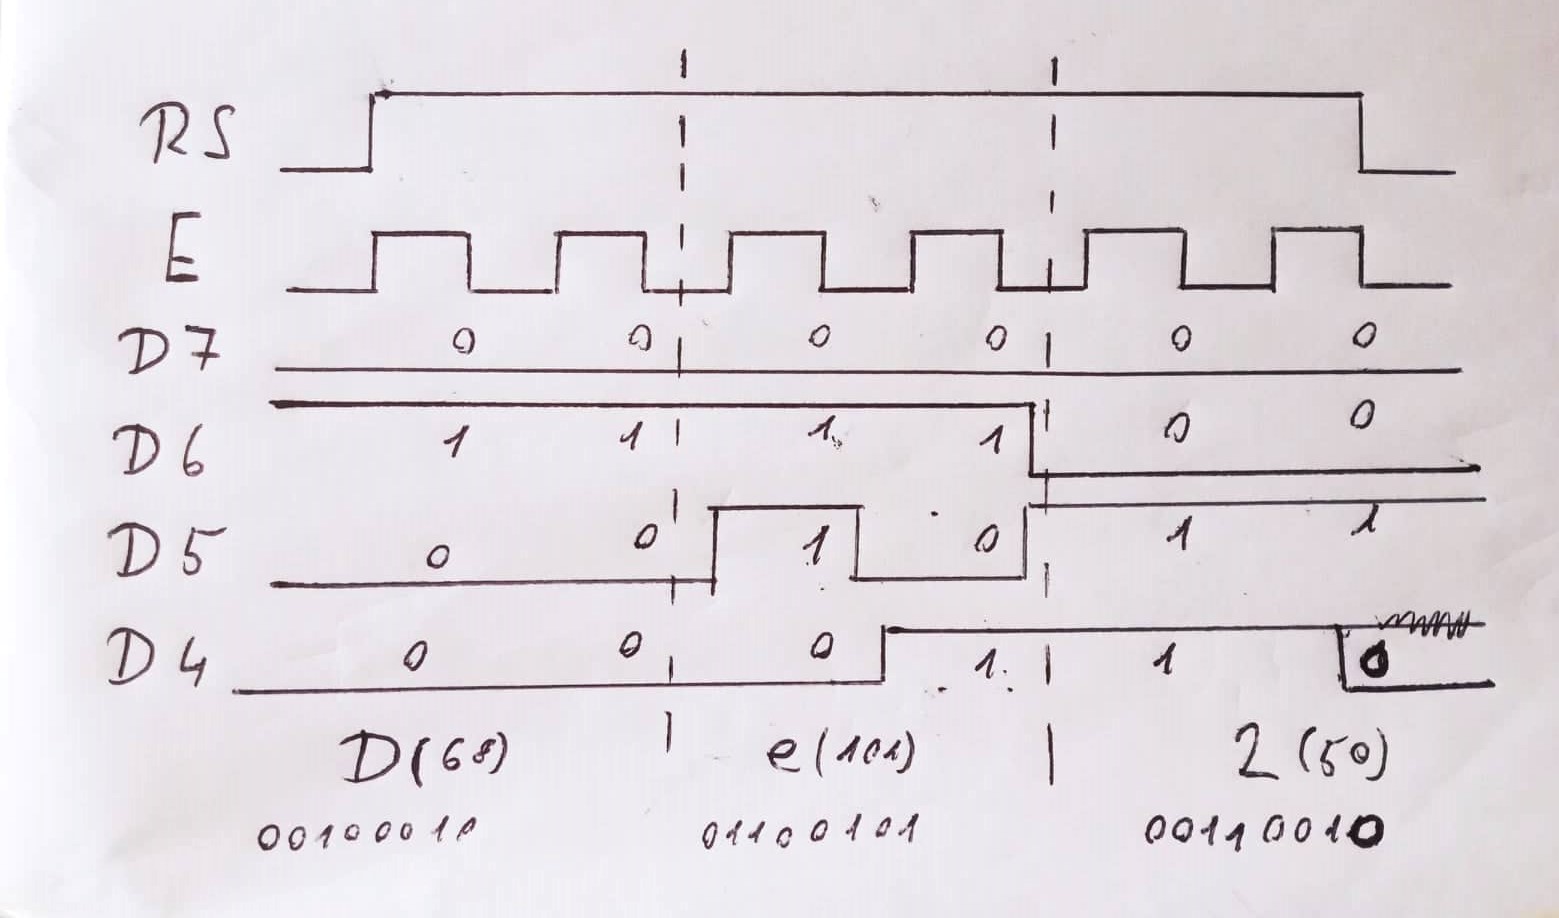 RS
E
D7 0 0 0 0 0 0
D6 1 1 1 1 0 0
D5 0 0 1 0 1 1
D4 0 0 0 1 1 0
D(68) e(101) 2(50)
00100010 01100101 00110010